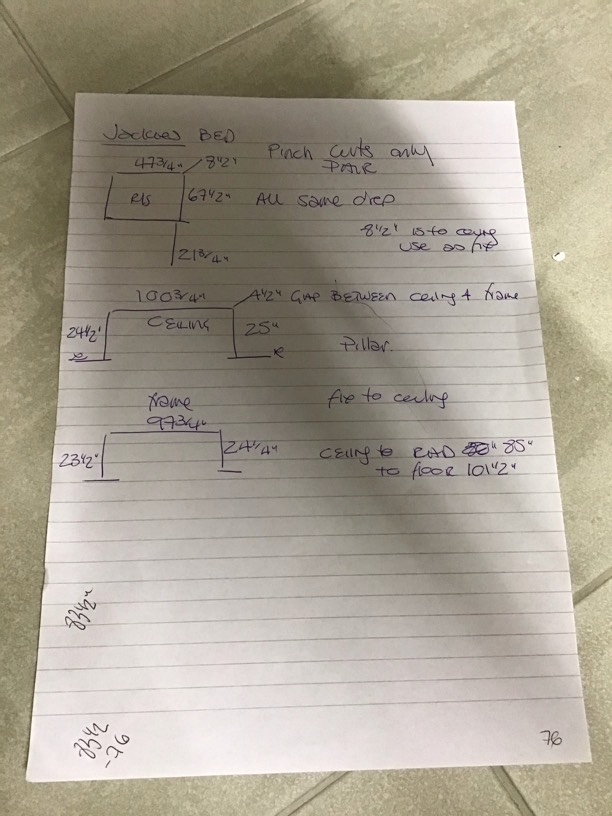 Jackies BED
47 3/4" 8 1/2" Pinch Curts only
PAIR
R/S 67 1/2" All same drop
8 1/2" is to ceiling
use as fix
21 3/4"
100 3/4" 4 1/2" GAP BETWEEN ceiling + frame
24 1/2" CEILING 25"
Pillar.
frame fix to ceiling
97 3/4"
23 1/2" 24 1/4" Ceiling to RAD 85"
to floor 101 1/2"
83 1/2"
83 1/2
-76
76